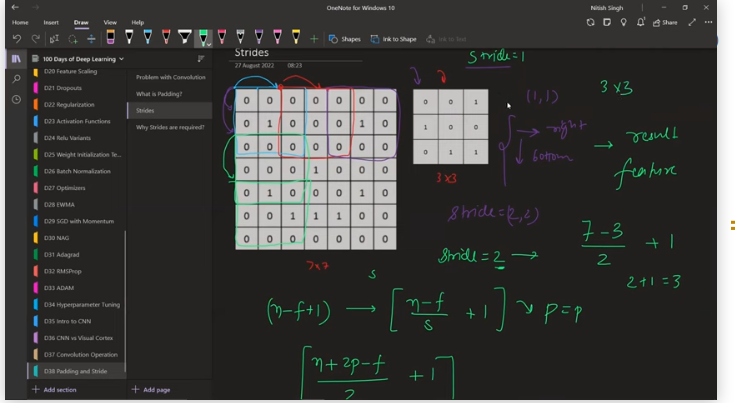 OneNote for Windows 10
Nitish Singh
Home Insert Draw View Help
Share
Shapes Ink to Shape Ink to Text
100 Days of Deep Learning
D20 Feature Scaling
D21 Dropouts
D22 Regularization
D23 Activation Functions
D24 Relu Variants
D25 Weight Initialization Te...
D26 Batch Normalization
D27 Optimizers
D28 EWMA
D29 SGD with Momentum
D30 NAG
D31 Adagrad
D32 RMSProp
D33 ADAM
D34 Hyperparameter Tuning
D35 Intro to CNN
D36 CNN vs Visual Cortex
D37 Convolution Operation
D38 Padding and Stride
Add section
Problem with Convolution
What is Padding?
Strides
Why Strides are required?
Add page
Strides
27 August 2022 08:23
Stride=1
0 0 0 0 0 0 0
0 1 0 0 0 1 0
0 0 0 0 0 0 0
0 0 0 1 0 0 0
0 1 0 0 0 1 0
0 0 1 1 1 0 0
0 0 0 0 0 0 0
7x7
0 0 1
1 0 0
0 1 1
3x3
(1,1)
→ right
↓ bottom
Stride=(2,2)
3x3
→ result
feature
Stride=2 →
7-3
2
+ 1
2+1=3
s
(n-f+1) → [n-f/s + 1] ↘ p=p
[n+2p-f/2 + 1]